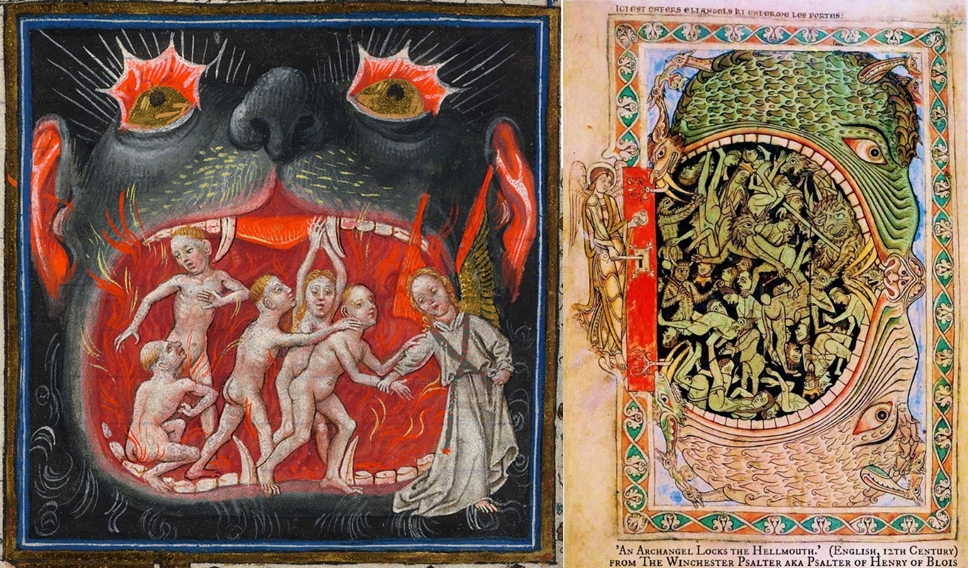 ICI EST ENFERS E LI ANGELS KI ENFERME LES PORTES:
'An Archangel Locks the Hellmouth.' (English, 12th Century)
from The Winchester Psalter aka Psalter of Henry of Blois